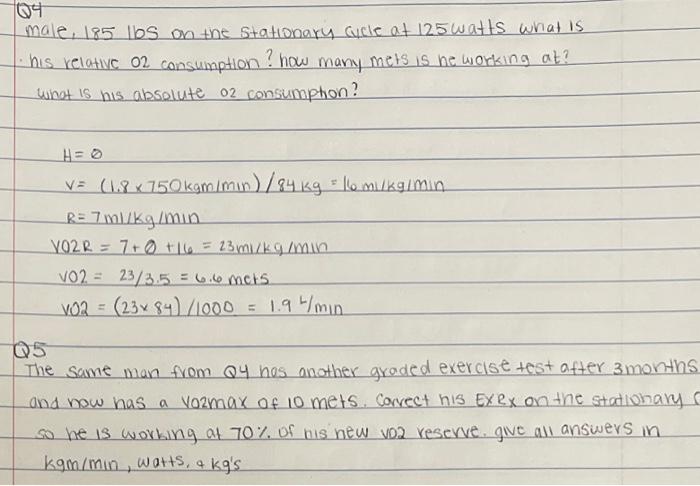 Q4
male, 185 lbs on the stationary cycle at 125 watts what is
his relative O2 consumption? how many mets is he working at?
what is his absolute O2 consumption?
H = 0
V = (1.8 x 750 kgm/min) / 84 kg = 16 ml/kg/min
R = 7 ml/kg/min
VO2R = 7 + 0 + 16 = 23 ml/kg/min
VO2 = 23/3.5 = 6.6 mets
VO2 = (23 x 84) /1000 = 1.9 L/min
Q5
The same man from Q4 has another graded exercise test after 3 months
and now has a VO2max of 10 mets. Correct his ExRx on the stationary
so he is working at 70% of his new VO2 reserve. give all answers in
kgm/min, watts, & kg's